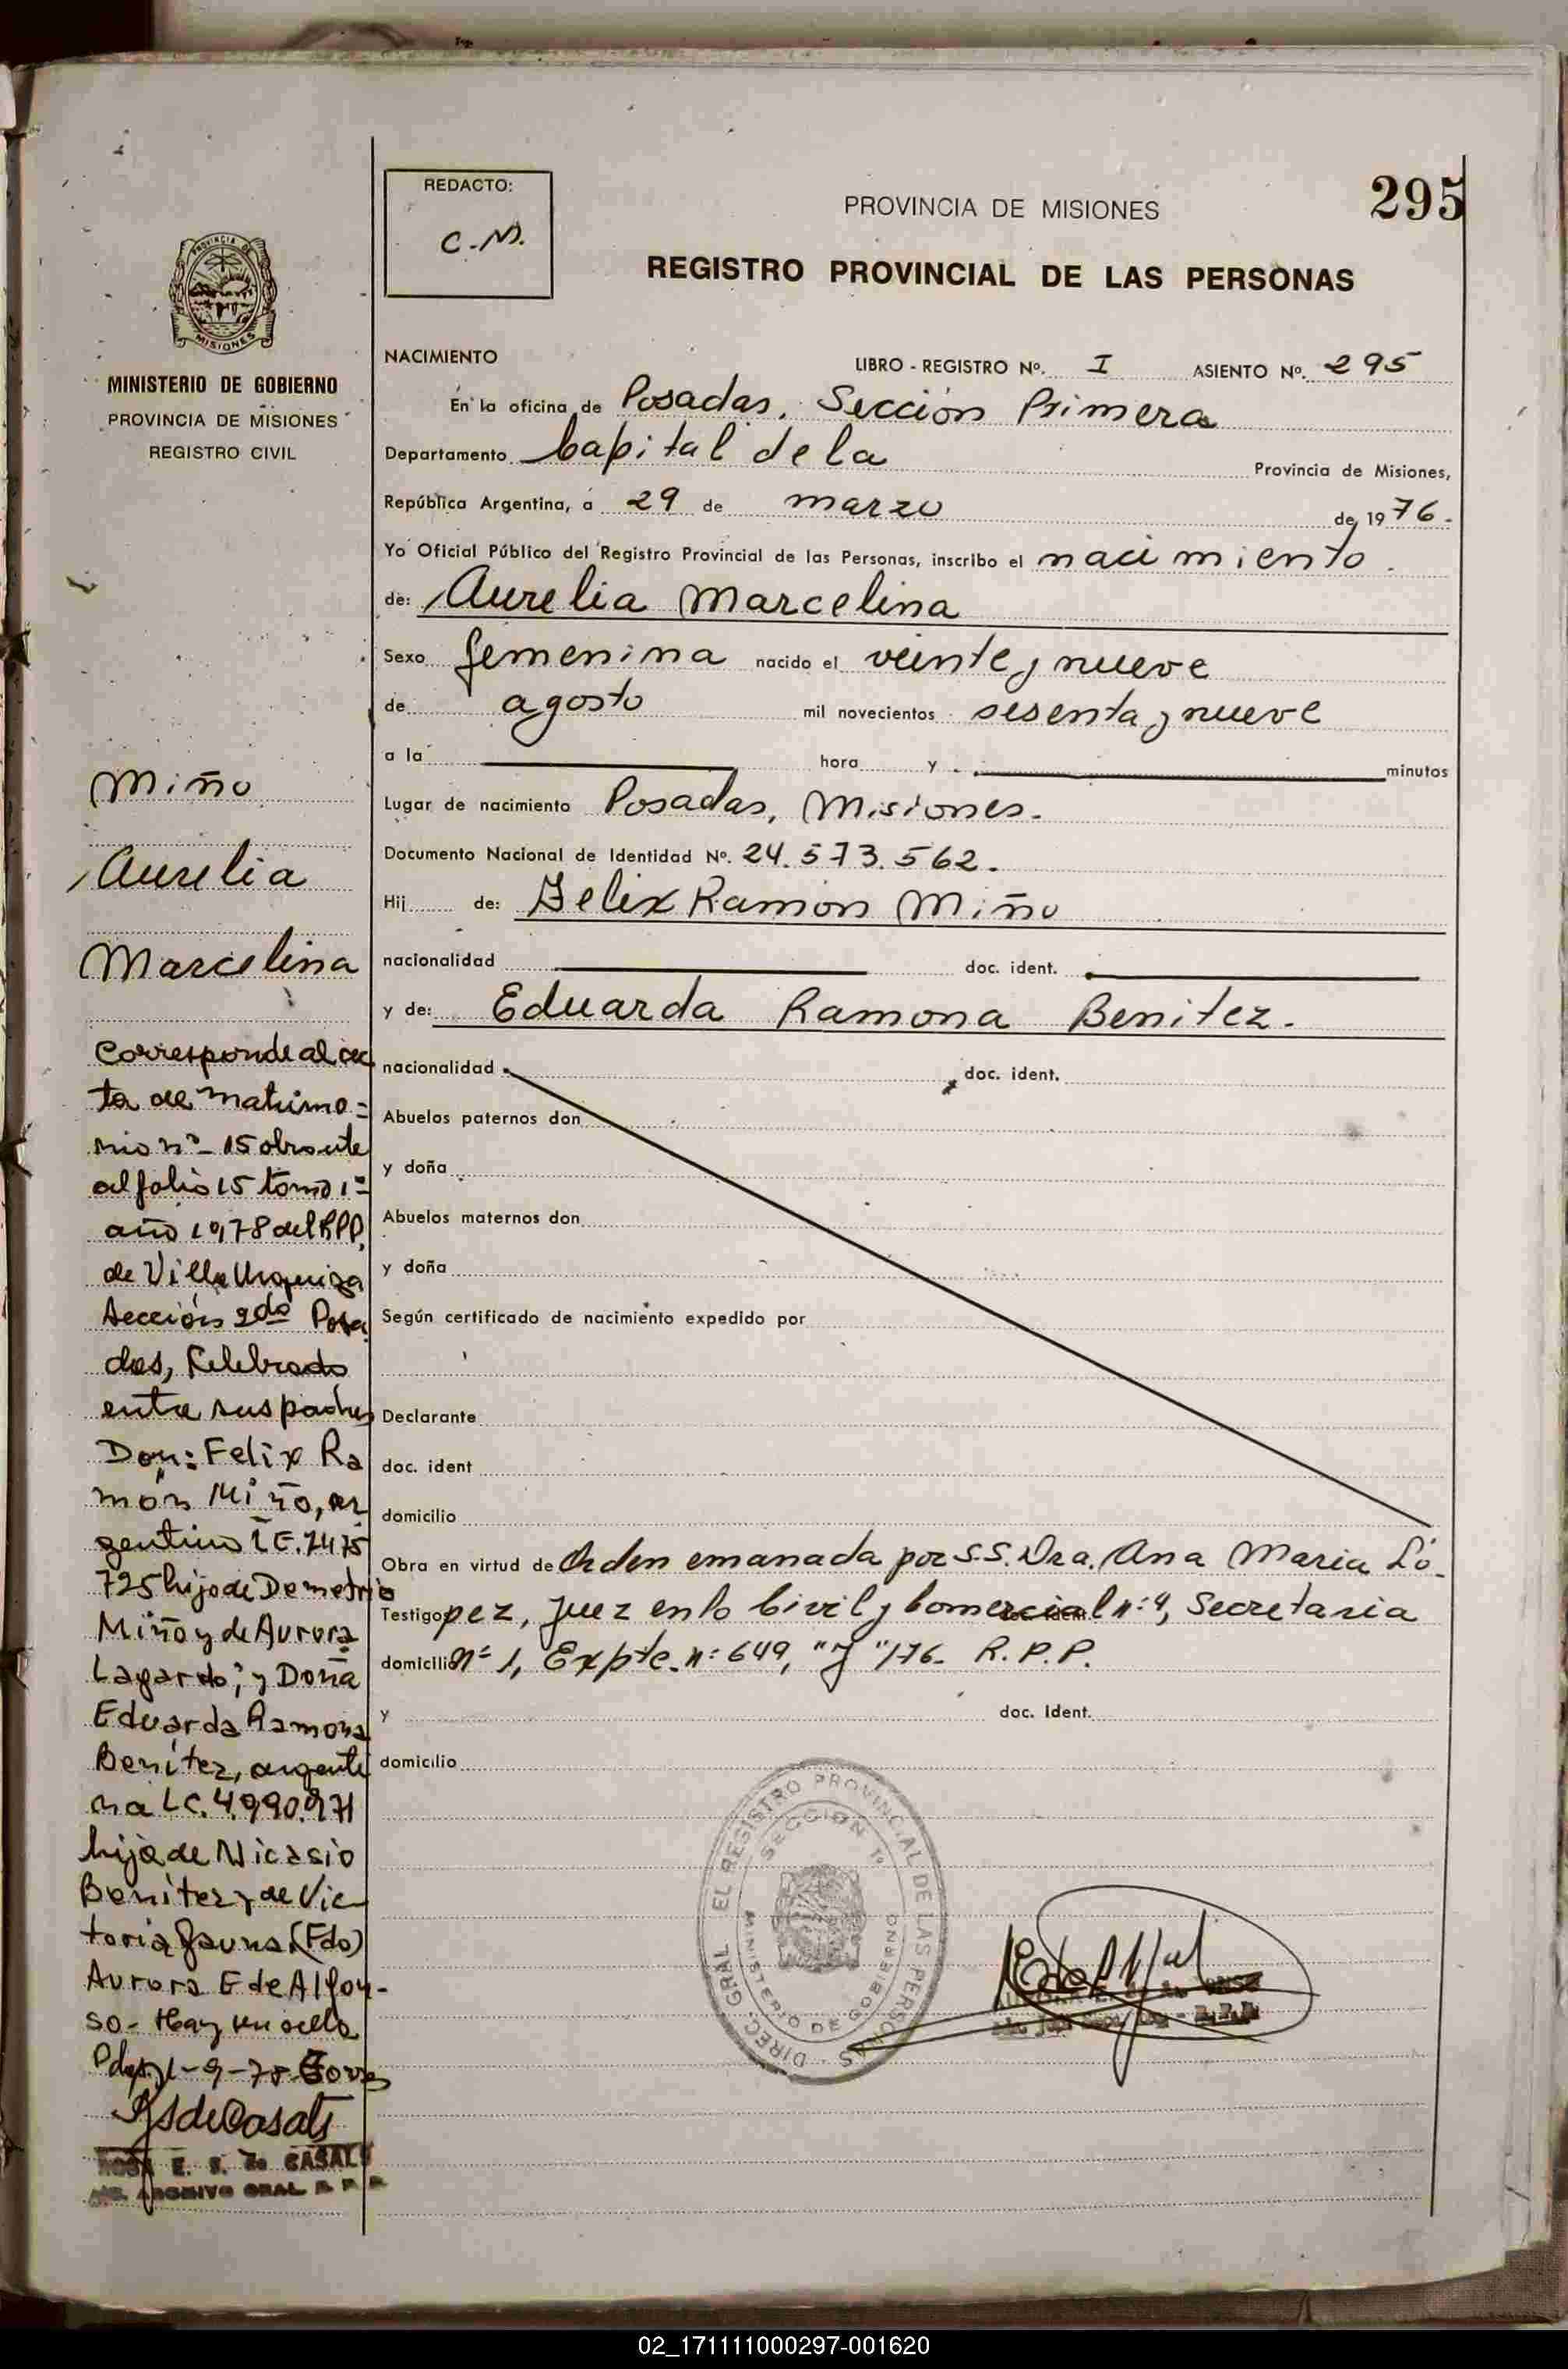 295
REDACTO:
C.M.
PROVINCIA DE MISIONES
REGISTRO PROVINCIAL DE LAS PERSONAS
PROVINCIA DE
MISIONES
MINISTERIO DE GOBIERNO
PROVINCIA DE MISIONES
REGISTRO CIVIL
NACIMIENTO LIBRO - REGISTRO Nº. I ASIENTO Nº. 295
En la oficina de Posadas, Sección Primera
Departamento Capital de la Provincia de Misiones,
República Argentina, a 29 de marzo de 1976.
Yo Oficial Público del Registro Provincial de las Personas, inscribo el nacimiento.
de: Aurelia Marcelina
Sexo femenina nacido el veinte y nueve
de agosto mil novecientos sesenta y nueve
a la hora y minutos
Lugar de nacimiento Posadas, Misiones.
Documento Nacional de Identidad Nº. 24.573.562.
Hij de: Felix Ramón Miño
nacionalidad doc. ident.
y de: Eduarda Ramona Benitez.
nacionalidad doc. ident.
Abuelos paternos don
y doña
Abuelos maternos don
y doña
Según certificado de nacimiento expedido por
Declarante
doc. ident
domicilio
Obra en virtud de Orden emanada por S.S. Dra. Ana Maria Ló-
Testigo pez, Juez en lo Civil y Comercial nº 4, Secretaria
domicilio nº 1, Expte. nº 649, "J"/76. R.P.P.
y doc. Ident.
domicilio
Miño
Aurelia
Marcelina
Corresponde al ac
ta de matrimo=
nio nº 15 obrante
al folio 15 tomo 1º
año 1978 del RPP,
de Villa Urquiza
Sección 2da Posa
das, Celebrado
entre sus padres
Don: Felix Ra
món Miño, ar
gentino L E. 7475
725 hijo de Demetrio
Miño y de Aurora
Lagardo; y Doña
Eduarda Ramona
Benítez, argenti
na L C. 4.990.971
hija de Nicasio
Benítez y de Vic
toria Gauna (Fdo)
Aurora E de Alfon-
so- Hay un sello
Pdas, 1-9-78
RSdeCasals
ROSA E. S. de CASALS
ARCHIVO GRAL. R. P. P.
DIREC. GRAL. EL REGISTRO PROVINCIAL DE LAS PERSONAS
SECCION 1º
MINISTERIO DE GOBIERNO
02_171111000297-001620